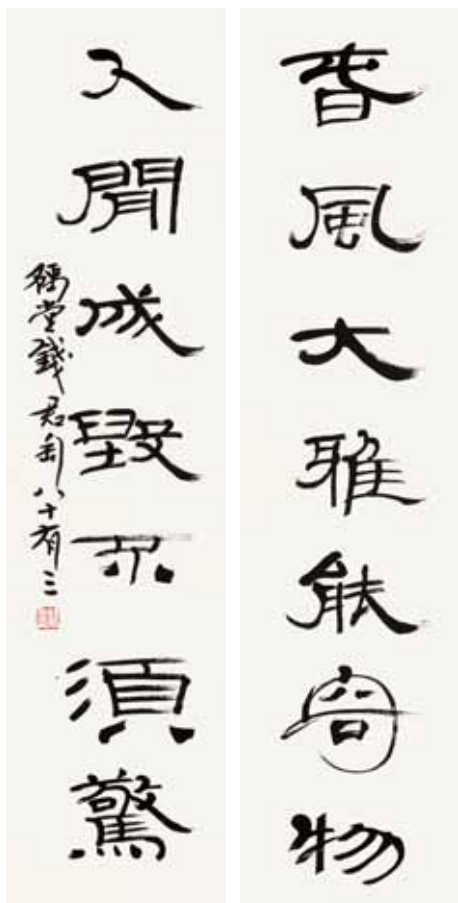 春風大雅能容物
久聞成毀不須驚
豫堂錢君匋八十有三